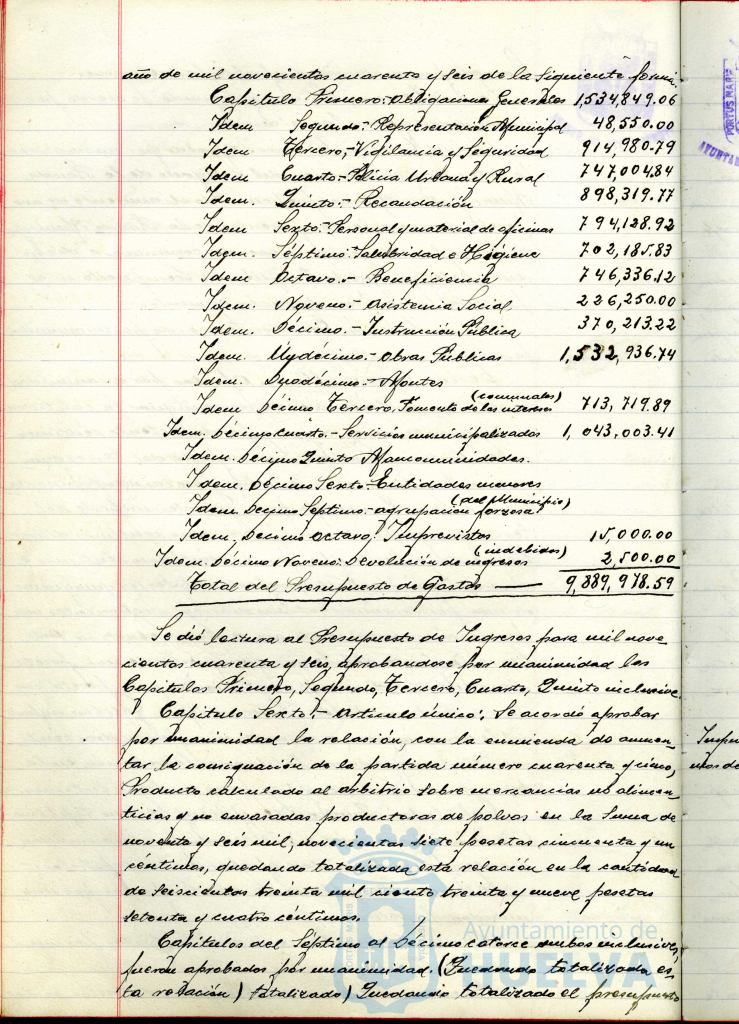 año de mil novecientos cuarenta y seis de la siguiente forma.
Capitulo Primero:- Obligaciones Generales 1,534,849.06
Idem Segundo:- Representación Municipal 48,550.00
Idem Tercero,- Vigilancia y Seguridad 914,980.79
Idem Cuarto:- Policia Urbana y Rural 747,004.84
Idem. Quinto:- Recaudación 898,319.77
Idem Sexto:- Personal y material de oficinas 794,128.92
Idem. Séptimo: Salubridad e Higiene 702,185.83
Idem Octavo.- Beneficiencia 746,336.12
Idem. Noveno:- Asistencia Social 226,250.00
Idem. Décimo.- Instrucción Publica 370,213.22
Idem. Undécimo.- Obras Publicas 1,532,936.74
Idem. Duodécimo.- Montes
Idem Décimo Tercero, Fomento de los intereses (comunales) 713,719.89
Idem. Décimo cuarto.- Servicios municipalizados 1,043,003.41
Idem. Décimo Quinto Mancomunidades.
Idem. Décimo Sexto- Entidades menores
Idem. Decimo Septimo- agrupacion forzosa (del Municipio)
Idem. Decimo Octavo. Imprevistos 15,000.00
Idem. Décimo Noveno: Devolución de ingresos (indebidos) 2,500.00
Total del Presupuesto de Gastos — 9,889,978.59
Se dió lectura al Presupuesto de Ingresos para mil nove-
cientos cuarenta y seis, aprobandose por unanimidad los
Capitulos Primero, Segundo, Tercero, Cuarto, Quinto inclusive.
Capitulo Sexto:- Articulo único: Se acordó aprobar
por unanimidad la relación, con la enmienda de aumen-
tar la consignación de la partida número cuarenta y cinco,
Producto calculado al arbitrio sobre mercancias no alimen-
ticias y no envasadas productoras de polvos en la suma de
noventa y seis mil, novecientas siete pesetas cincuenta y un
céntimos, quedando totalizada esta relación en la cantidad
de seiscientas treinta mil ciento treinta y nueve pesetas
setenta y cuatro céntimos.
Capitulos del Séptimo al Décimo catorce ambos inclusives,
fueron aprobados por unanimidad. (Quedando totalizada es-
ta relación) totalizado) Quedando totalizado el presupuesto
PORTUS MARIS
Ayuntamiento de
HUELVA